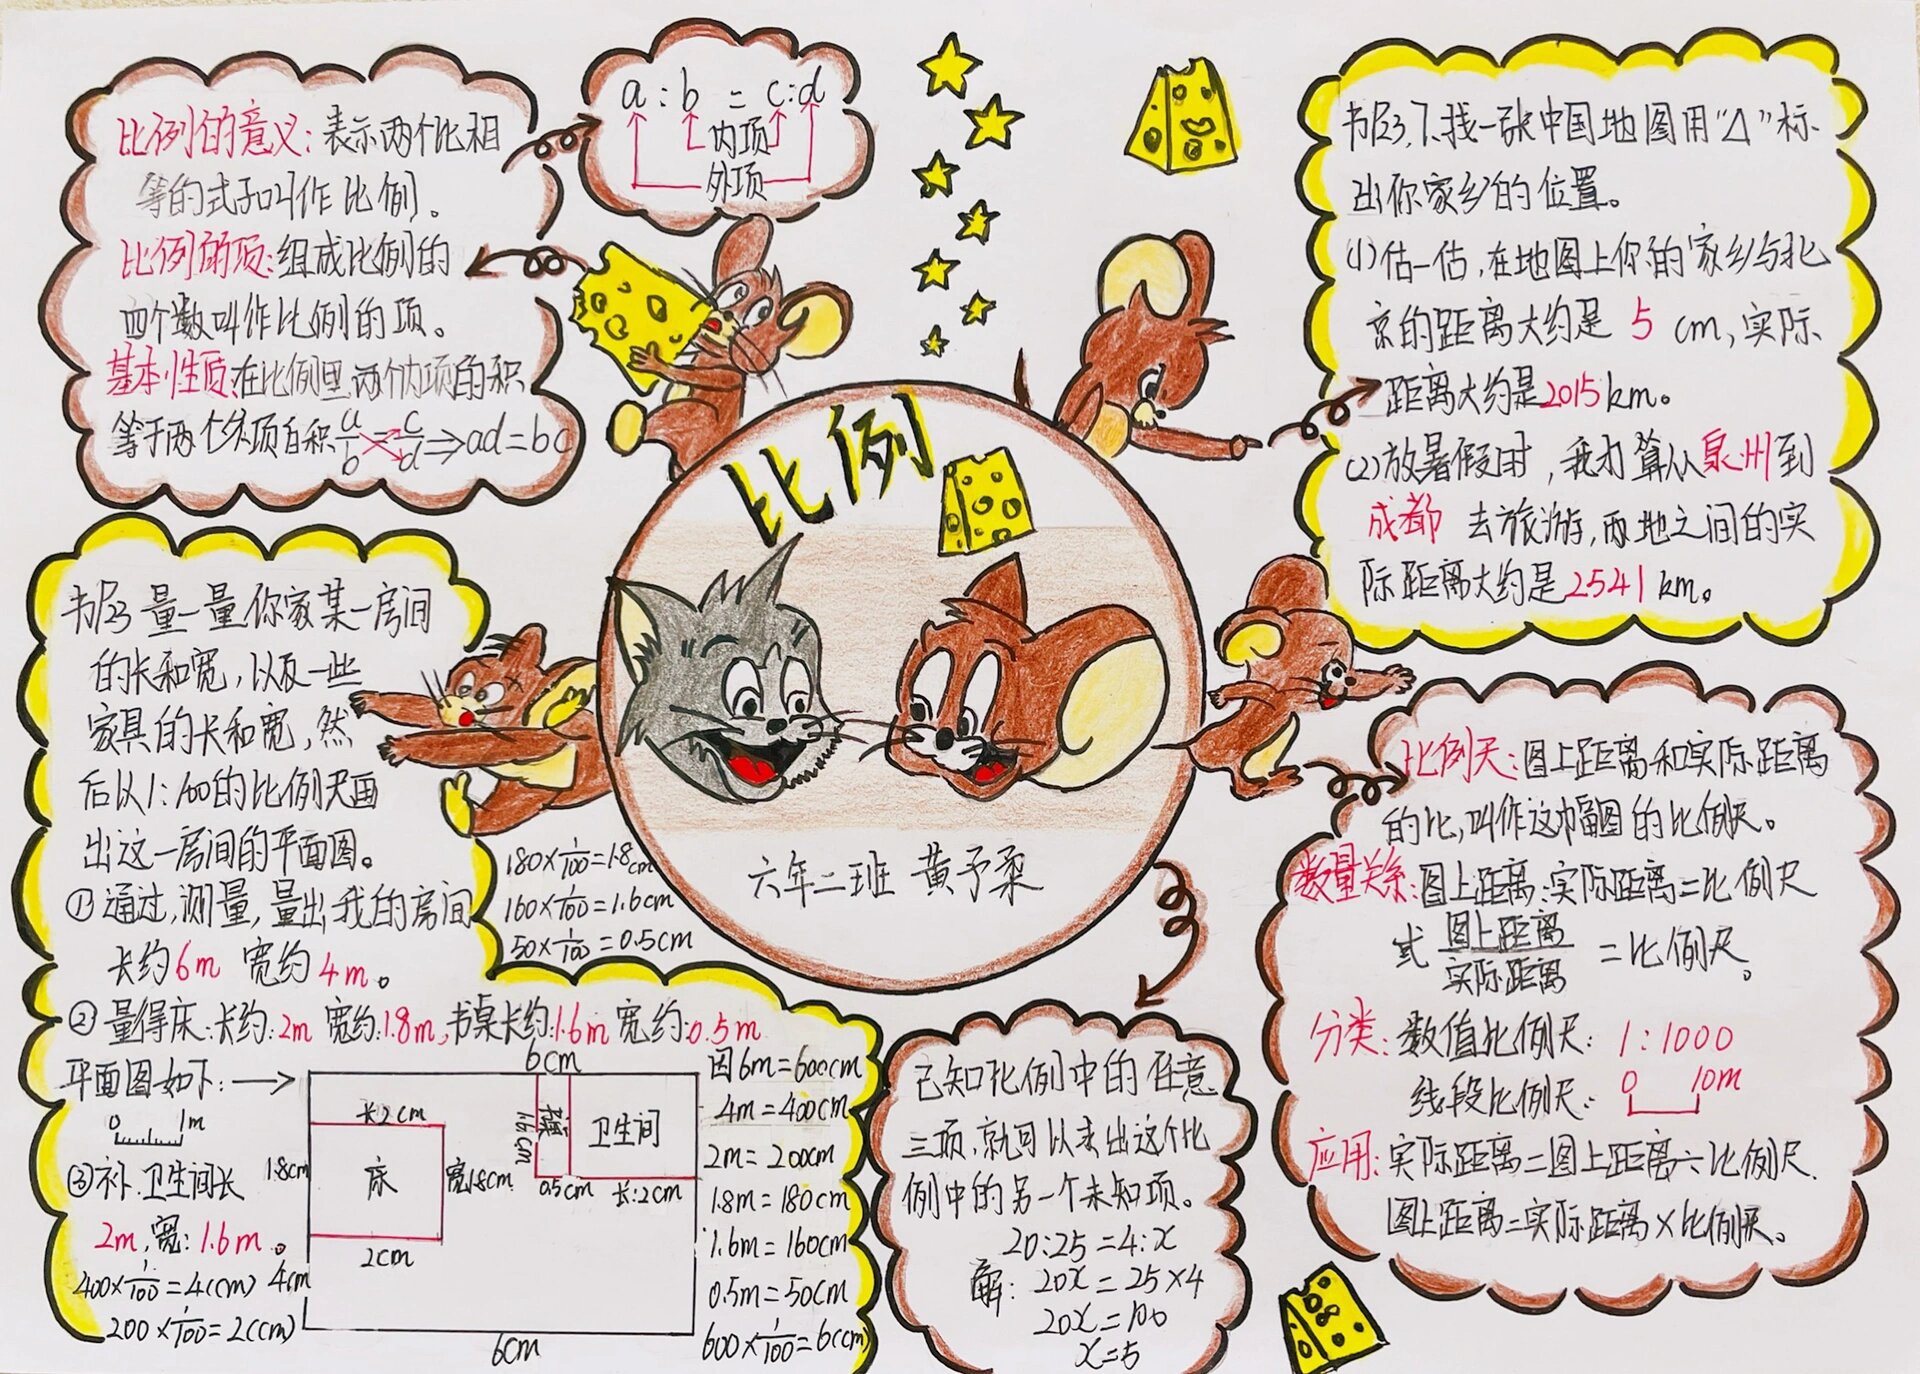 比例的意义:表示两个比相
等的式子叫作比例。
比例的项:组成比例的
四个数叫作比例的项。
基本性质:在比例里两个内项的积
等于两个外项的积 a/b=c/d⇒ad=bc
a:b=c:d
内项
外项
书P23,7、找一张中国地图用“△”标
出你家乡的位置。
(1)估一估,在地图上你的家乡与北
京的距离大约是5cm,实际
距离大约是2015km。
(2)放暑假时,我打算从泉州到
成都去旅游,两地之间的实
际距离大约是2541km。
比例
六年二班 黄予柔
书P23 量一量你家某一房间
的长和宽,以及一些
家具的长和宽,然
后以1:100的比例尺画
出这一房间的平面图。
①通过,测量,量出我的房间
长约6m 宽约4m。
②量得床:长约:2m 宽约:1.8m,书桌长约:1.6m 宽约:0.5m
平面图如下:→
0 1m
③补.卫生间长
2m,宽:1.6m。
400×1/100=4(cm)
200×1/100=2(cm)
180×1/100=1.8cm
160×1/100=1.6cm
50×1/100=0.5cm
6cm
长2cm
1.8cm
床
宽1.8cm
2cm
1.6cm
卫生间
0.5cm
长:2cm
4cm
6cm
因6m=600cm
4m=400cm
2m=200cm
1.8m=180cm
1.6m=160cm
0.5m=50cm
600×1/100=6(cm)
已知比例中的任意
三项,就可以求出这个比
例中的另一个未知项。
20:25=4:x
解: 20x=25×4
20x=100
x=5
比例尺:图上距离和实际距离
的比,叫作这幅图的比例尺。
数量关系:图上距离:实际距离=比例尺
或 图上距离/实际距离=比例尺。
分类:数值比例尺: 1:1000
线段比例尺: 0 10m
应用:实际距离=图上距离÷比例尺.
图上距离=实际距离×比例尺。